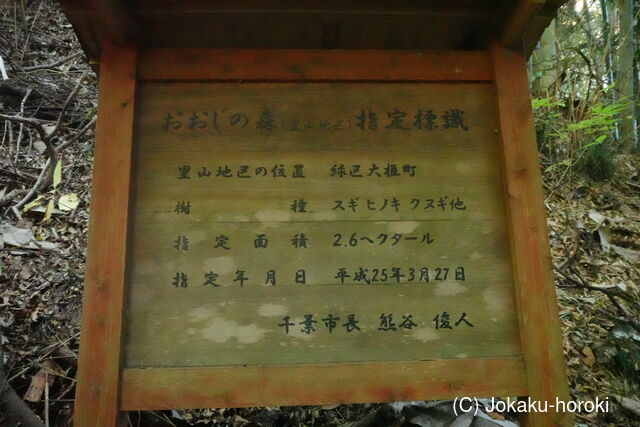 おおじの森(里山地区)指定標識
里山地区の位置 緑区大椎町
樹種 スギ ヒノキ クヌギ他
指定面積 2.6ヘクタール
指定年月日 平成25年3月27日
千葉市長 熊谷 俊人
(C) Jokaku-horoki